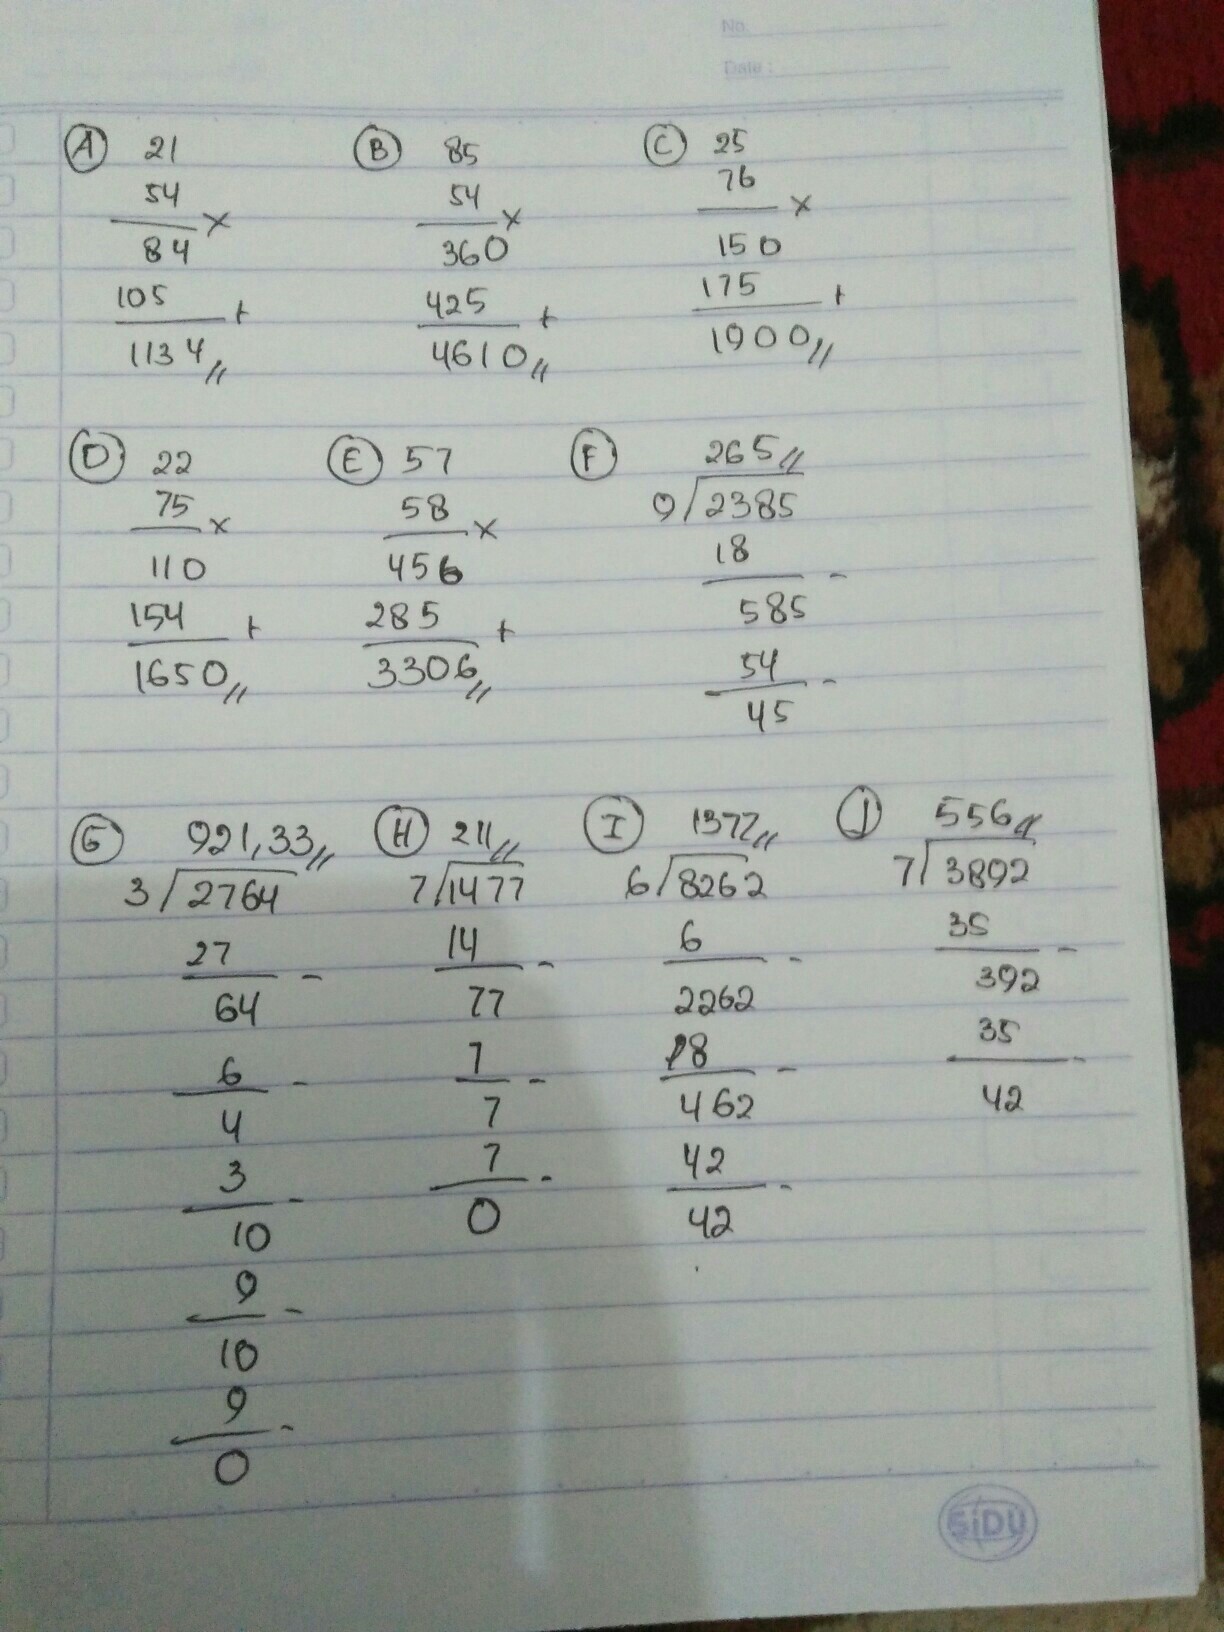 No.
Date :
A 21
54
x
84
105
+
1134 //
B 85
54
x
360
425
+
4610 //
C 25
76
x
150
175
+
1900 //
D 22
75
x
110
154
+
1650 //
E 57
58
x
456
285
+
3306 //
F 265 //
9/2385
18
-
585
54
-
45
G 921,33 //
3/2764
27
-
64
6
-
4
3
-
10
9
-
10
9
-
0
H 211 //
7/1477
14
-
77
7
-
7
7
-
0
I 1377 //
6/8262
6
-
2262
18
-
462
42
-
42
J 556 //
7/3892
35
-
392
35
-
42
SiDU